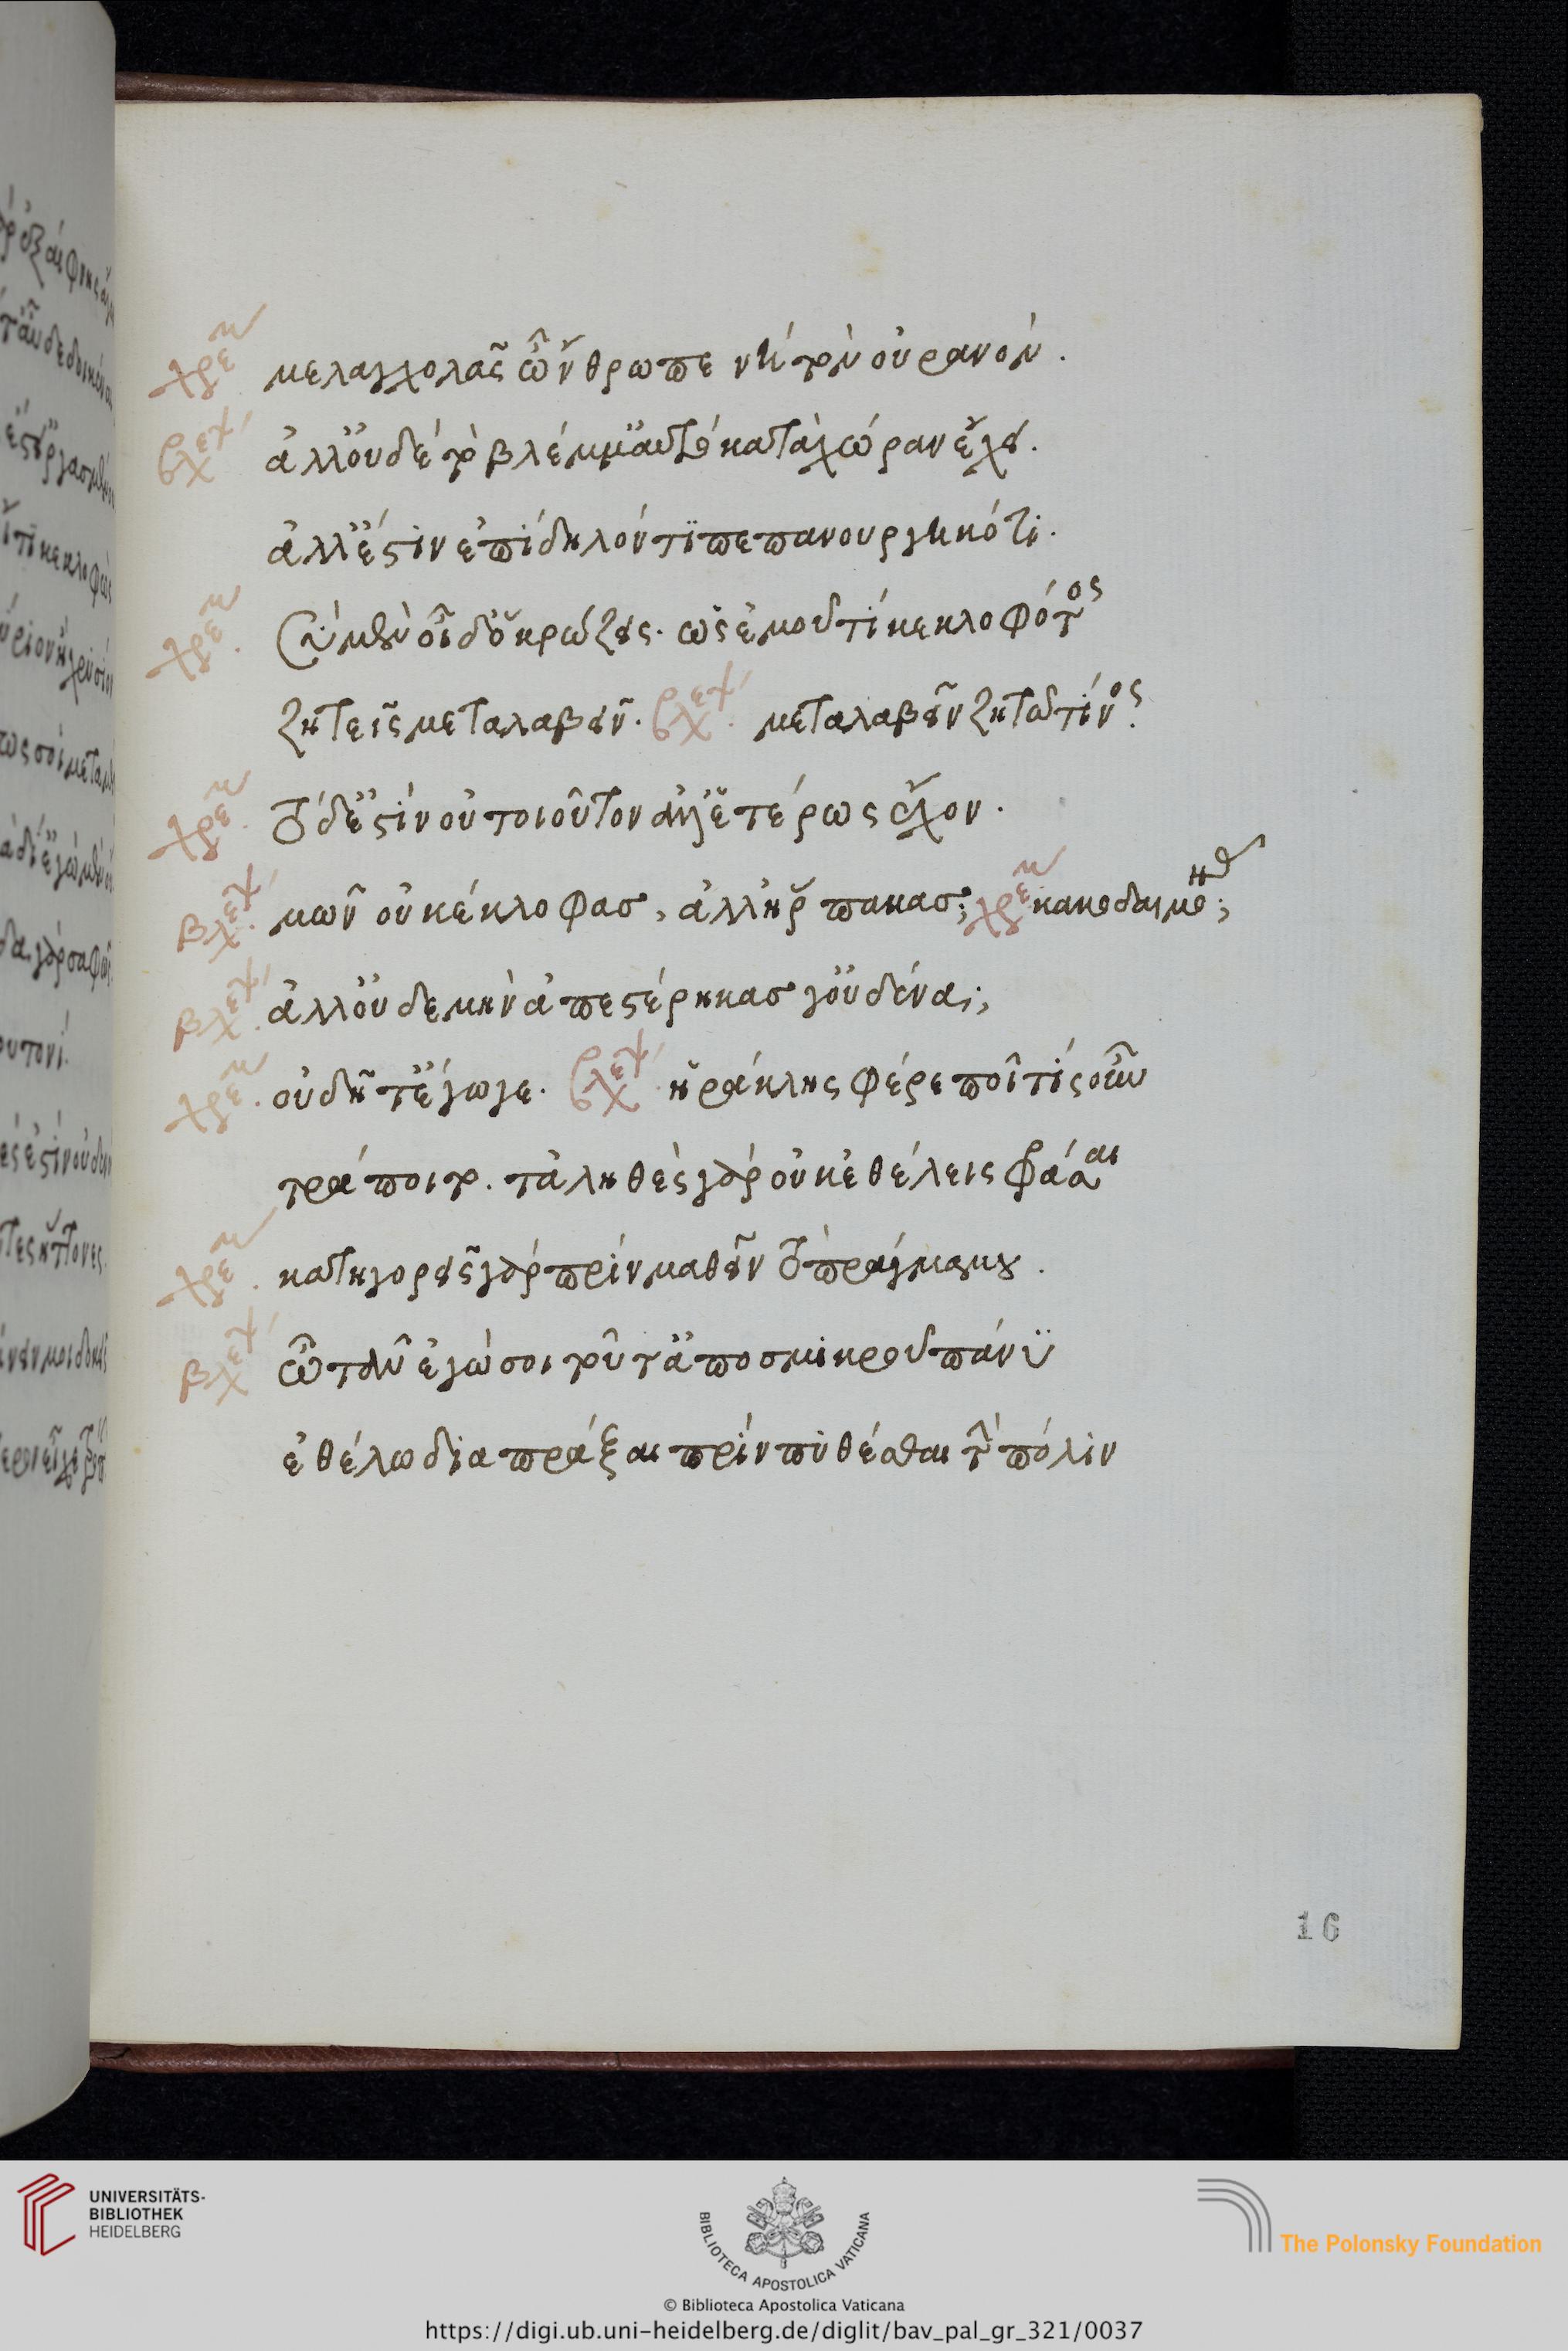 χρε μ μελαγχολᾷς ὦν̓θρωπε νὴ τὸν οὐρανόν.
βλεχ ψ ἀλλ' οὐδὲ τὸ βλέμμ' αὐτὸ κατὰ χώραν ἔχει.
ἀλλ' ἐστὶν ἐπίδηλόν τι πεπανουργηκότι.
χρε μ Σὺ μὲν οἶδ' ὃ κρώζεις. ὡς ἐμοῦ τί κεκλοφότος
ζητεῖς μεταλαβεῖν. βλεχ ψ μεταλαβεῖν ζητῶ τίνος.
χρε μ τὸ δ' ἐστὶν οὐ τοιοῦτον ἀλλ' ἑτέρως ἔχον.
βλεχ ψ μῶν οὐ κέκλοφας, ἀλλ' ἥρπακας; χρε μ κακοδαιμονῇς;
βλεχ ψ ἀλλ' οὐδὲ μὴν ἀπεστέρηκας γ' οὐδένα;
χρε μ οὐ δῆτ' ἔγωγε. βλεχ ψ ἡράκλης φέρε ποῖ τίς οὖν
τράποιτο. τἀληθὲς γὰρ οὐκ ἐθέλεις φράσαι
χρε μ κατηγορεῖς γὰρ πρὶν μαθεῖν τὸ πρᾶγμά μου.
βλεχ ψ ὦ τᾶν ἐγὼ σοι τοῦτ' ἀπὸ σμικροῦ πάνυ
ἐθέλω διαπρᾶξαι πρὶν πυθέσθαι τὴν πόλιν
16
UNIVERSITÄTS-
BIBLIOTHEK
HEIDELBERG
BIBLIOTECA APOSTOLICA VATICANA
The Polonsky Foundation
© Biblioteca Apostolica Vaticana
https://digi.ub.uni-heidelberg.de/diglit/bav_pal_gr_321/0037